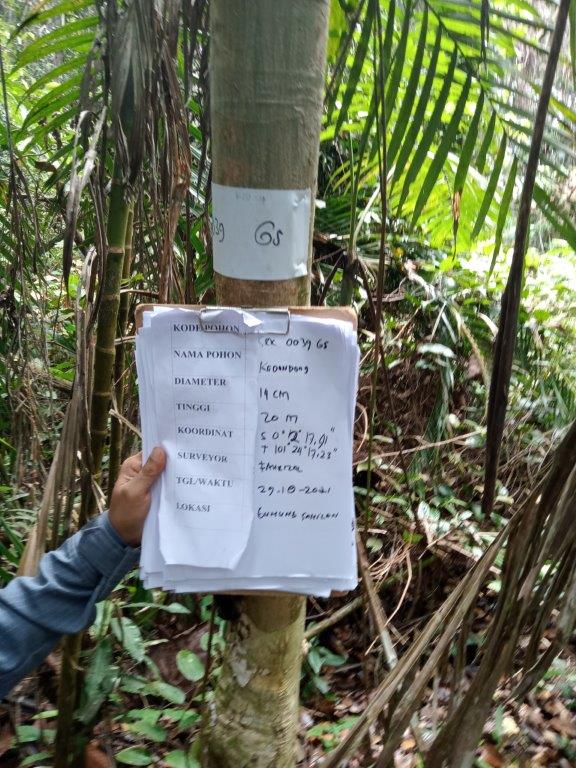 39 GS
KODE POHON 0039 GS
NAMA POHON KEDONDONG
DIAMETER 19 CM
TINGGI 20 M
KOORDINAT S 0° 17,91"
T 101° 24' 17,23"
SURVEYOR
TGL/WAKTU 29-10-2021
LOKASI GUNUNG SAHILAN